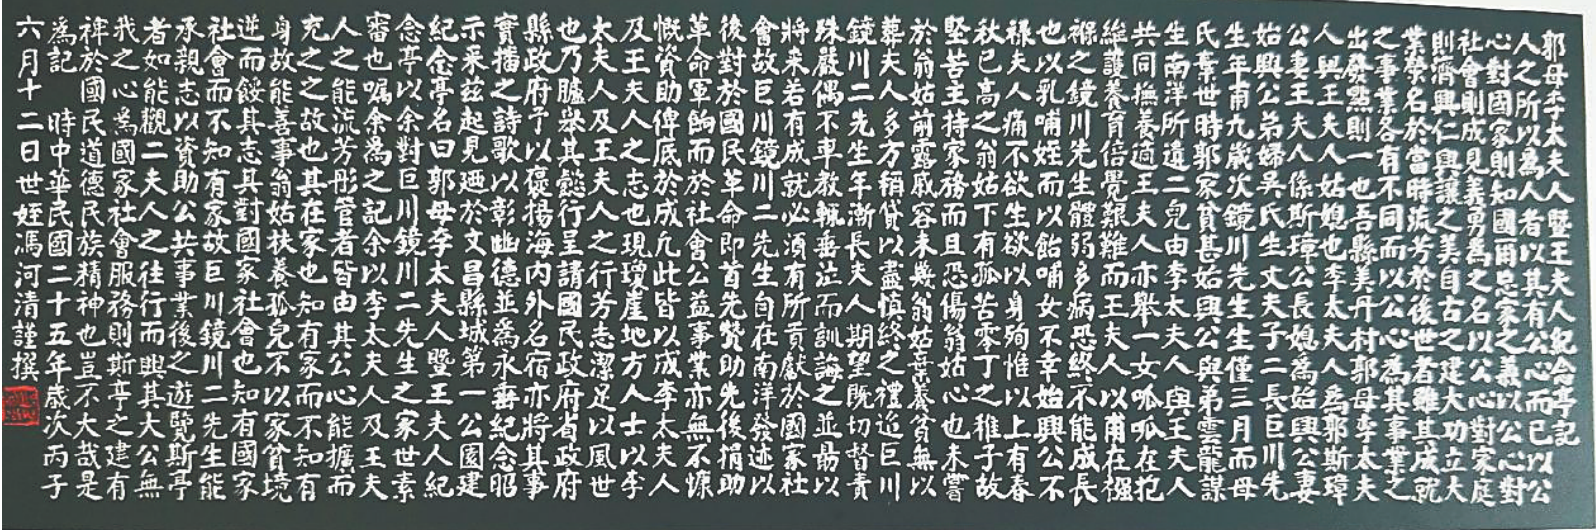 郭母李太夫人暨王夫人紀念亭記
人之所以為人者以其有公心而已以公
心對國家則知國爾忘家之義以公心對
社會則成見義勇為之名以公心對家庭
則濟興仁興讓之美自古之建大功立大
業榮名於當時流芳於後世者雖其成就
之事業各有不同而以公心為其事業之
出發點則一也吾縣美丹村郭母李太夫
人與王夫人姑媳也李太夫人為郭斯瑋
公妻王夫人係斯瑋公長媳為始興公妻
始興公弟婦吳氏生丈夫子二長巨川先
生年甫九歲次鏡川先生生僅三月而母
氏棄世時郭家貧甚始興公與弟雲龍謀
生南洋所遺二兒由李太夫人與王夫人
共同撫養適王夫人亦舉一女呱呱在抱
維護養育倍覺艱難而王夫人以甫在襁
褓之鏡川先生體弱多病恐終不能成長
也以乳哺姪而以飴哺女不幸始興公不
祿夫人痛不欲生欲以身殉惟以上有春
秋已高之翁姑下有孤苦零丁之稚子故
堅苦主持家務而且恐傷翁姑心也未嘗
於翁姑前露戚容未幾翁姑棄養貧無以
葬夫人多方稱貸以盡慎終之禮迨巨川
鏡川二先生年漸長夫人期望既切督責
殊嚴偶不率教輒垂泣而訓誨之並勗以
將來若有成就必須有所貢獻於國家社
會故巨川鏡川二先生自在南洋發迹以
後對於國民革命即首先贊助先後捐助
革命軍餉而於社會公益事業亦無不慷
慨資助俾底於成凡此皆以成李太夫人
及王夫人之志也現瓊崖地方人士以李
太夫人及王夫人之行芳志潔足以風世
也乃臚舉其懿行呈請國民政府省政府
縣政府予以褒揚海內外名宿亦將其事
實播之詩歌以彰幽德並為永垂紀念昭
示來茲起見廼於文昌縣城第一公園建
紀念亭名曰郭母李太夫人暨王夫人紀
念亭以余對巨川鏡川二先生之家世素
審也囑余為之記余以李太夫人及王夫
人之能流芳彤管者皆由其公心能擴而
充之之故也其在家也知有家而不知有
身故能善事翁姑扶養孤兒不以家貧境
逆而餒其志其對國家社會也知有國家
社會而不知有家故巨川鏡川二先生能
承親志以資助公共事業後之遊覽斯亭
者如能觀二夫人之往行而興其大公無
我之心為國家社會服務則斯亭之建有
裨於國民道德民族精神也豈不大哉是
為記　時中華民國二十五年歲次丙子
六月十二日世姪馮河清謹撰